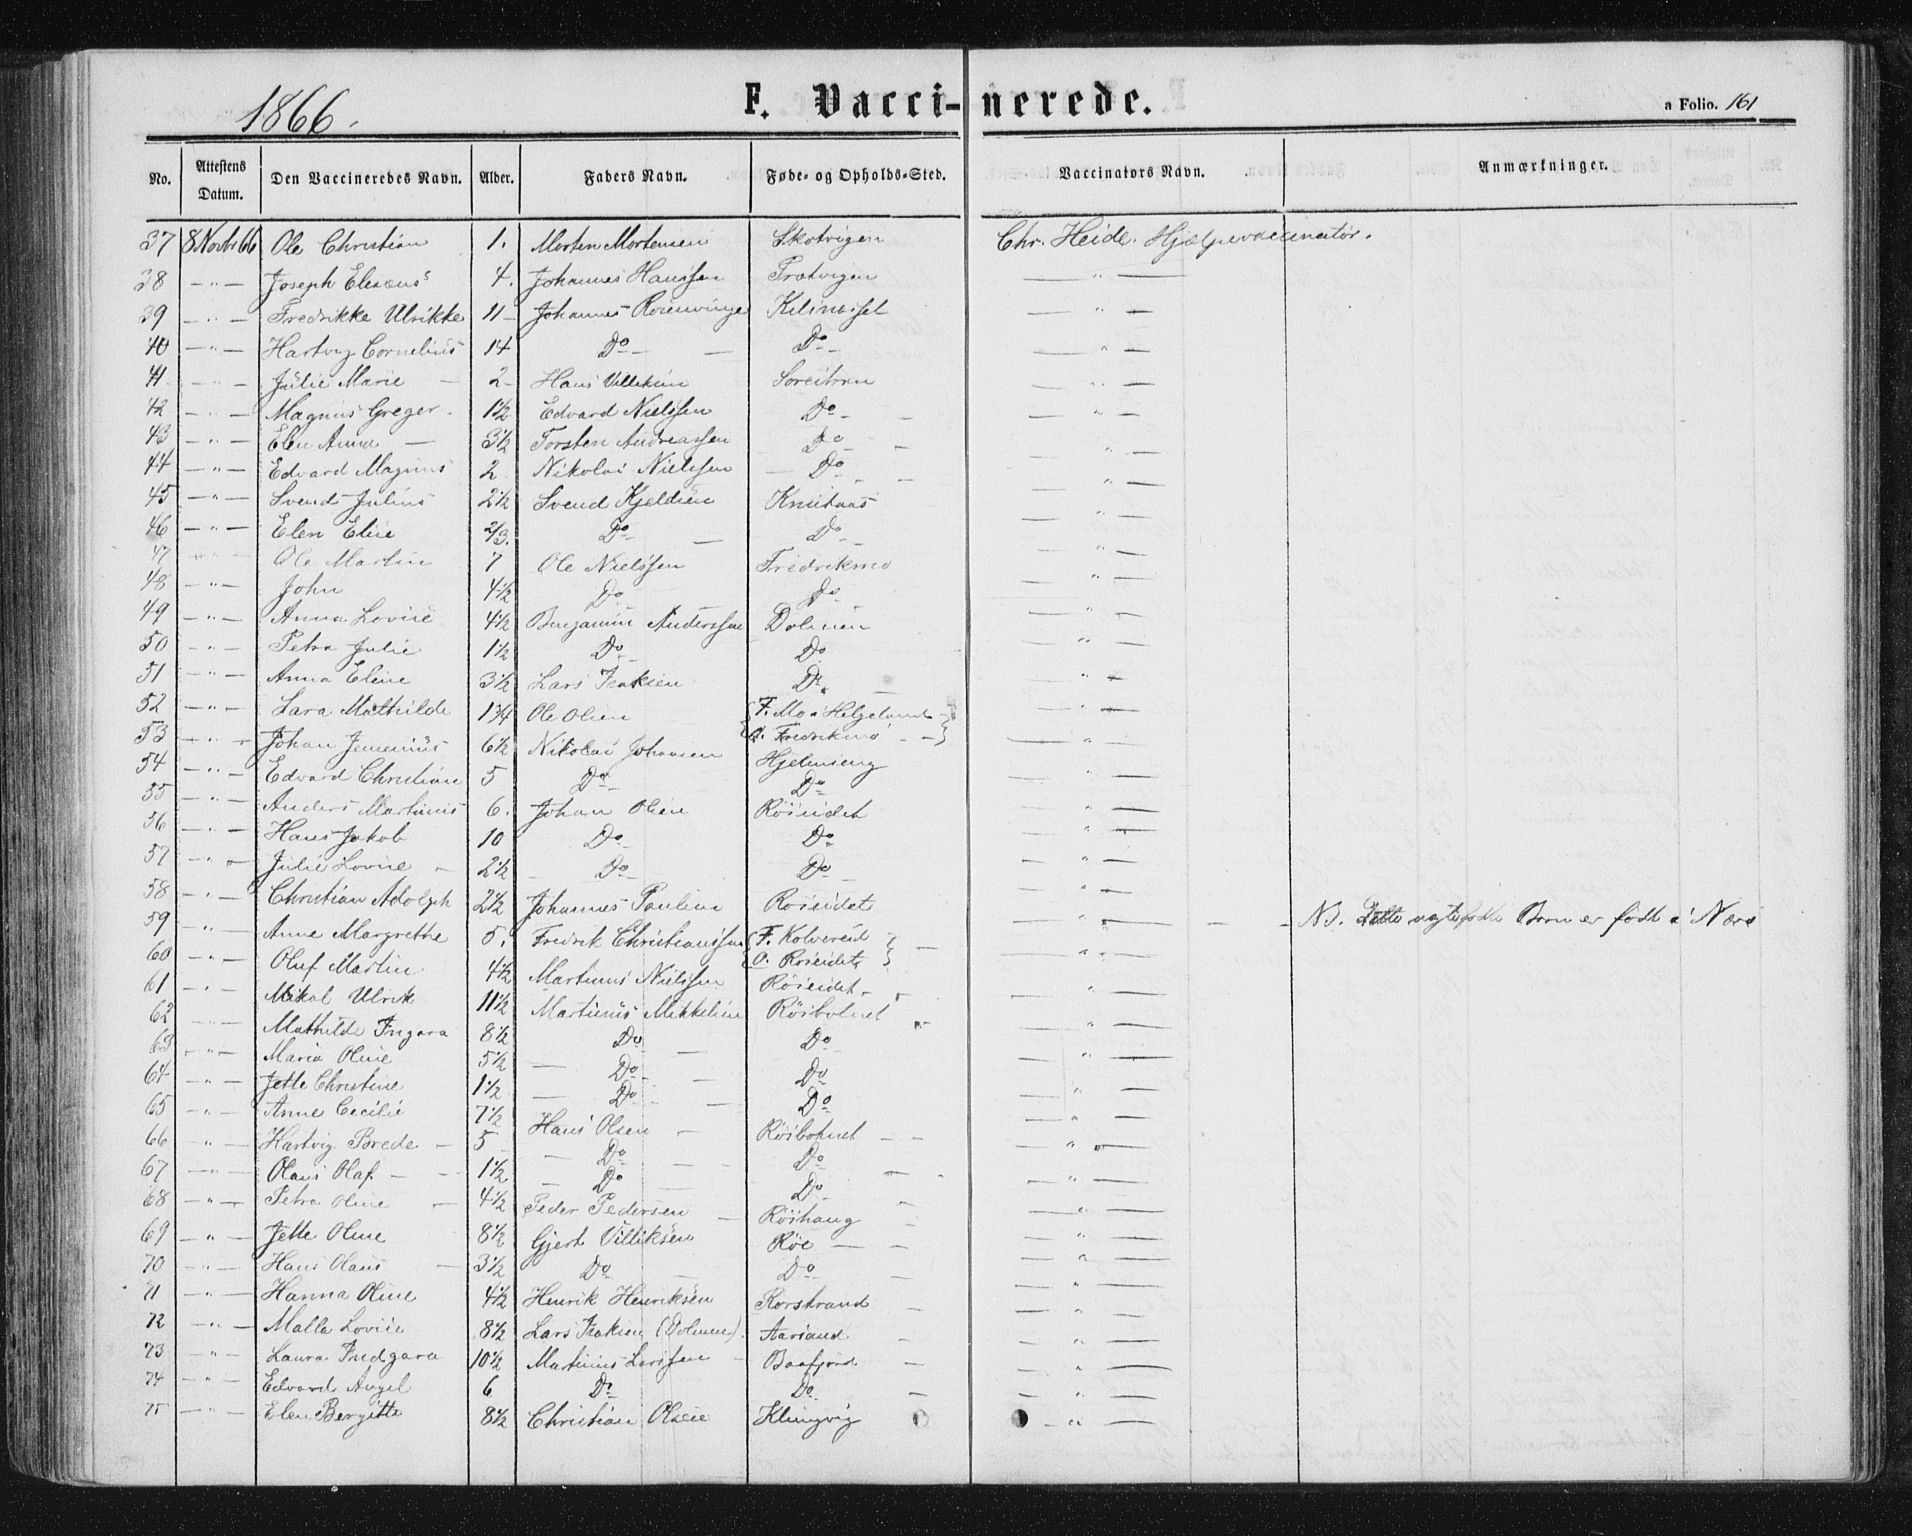 1866.
F. Vaccinerede.
a Folio. 161
No. Attestens Datum. Den Vaccineredes Navn. Alder. Faders Navn. Føde- og Opholds-Sted. Vaccinators Navn. Anmærkninger.
37 8 Novbr 66 Ole Christian 1. Morten Mortensen Skotvigen Chr. Heide. Hjælpevaccinatør.
38 —"— Joseph Eliseus 4. Johannes Hanssen Trætvigen —"—
39 —"— Fredrikke Ulrikke 11 Johannes Rosenvinge Kilinæsset —"—
40 —"— Hartvig Cornelius 14 Do — Do — —"—
41 —"— Julie Marie 2 Hans Villiksen —"—
42 —"— Magnus Greger 1½ Edvard Nielssen Do — —"—
43 —"— Elen Anna — 3½ Torsten Andreassen Do — —"—
44 —"— Edvard Magnus 2 Nikolai Nielssen Do — —"—
45 —"— Svend Julius 2½ Svend Kjeldsen Knutaas —"—
46 —"— Elen Elise 2/3. Do — Do — —"—
47 —"— Ole Martin 7 Ole Nielssen Fredrikmo —"—
48 —"— John 4½ Do Do —"—
49 —"— Anna Lovise 4½ Benjamin Anderssen Dolmen —"—
50 —"— Petra Julie 1½ Do Do —"—
51 —"— Anna Eline 3½ Lars Isaksen Do —"—
52 —"— Lara Mathilde 1¾ Ole Olsen {F. Mo i Helgeland —"—
O. Fredrikmo — }
53 —"— Johan Jemenius 6½ Nikolai Johansen Hjelmseng —"—
54 —"— Edvard Christian 5 Do — Do — —"—
55 —"— Anders Martinus 6. Johan Olsen Røiseidet —"—
56 —"— Hans Jakob 10 Do — Do —"—
57 —"— Julie Lovise — 2½ Do — Do —"—
58 —"— Christian Adolph 2½ Johannes Paulsen Røiseidet —"—
59 —"— Anne Margrethe 5. Fredrik Christianssen {F. Kolvereid —"— NB. Dette ægtefødte Barn er født i Nærø
O. Røiseidet }
60 —"— Oluf Martin 4½ Martinus Nielssen Røiseidet —"—
61 —"— Mikal Ulrik 11½ Martinus Mikkelsen Røisbotnet —"—
62 —"— Mathilde Ingara 8½ Do — Do —"—
63 —"— Maria Oline 5½ — Do — Do —"—
64 —"— Jette Christine 1½ — Do — Do —"—
65 —"— Anne Cecilie 7½ Hans Olsen — Røisbotnet — —"—
66 —"— Hartvig Brede — 5 — Do — Do —"—
67 —"— Olaus Olaf — 1½ — Do — Do —"—
68 —"— Petra Oline — 4½ Peder Pedersen — Røishaug —"—
69 —"— Jette Oline 8½ Gjert Villiksen Røe — —"—
70 —"— Hans Olaus — 3½ Do — Do — —"—
71 —"— Hanna Oline 4½ Henrik Henriksen Rorstrand — —"—
72 —"— Malla Lovise 8½ Lars Isaksen (Dolmen). Aarsand — —"—
73 —"— Laura Fredgara 10½ Martinus Larssen — Baafjord — —"—
74 —"— Edvard Angel 6 Do — Do — —"—
75 —"— Elen Bergitte 8½ Christian Olsen Klingvig —"—